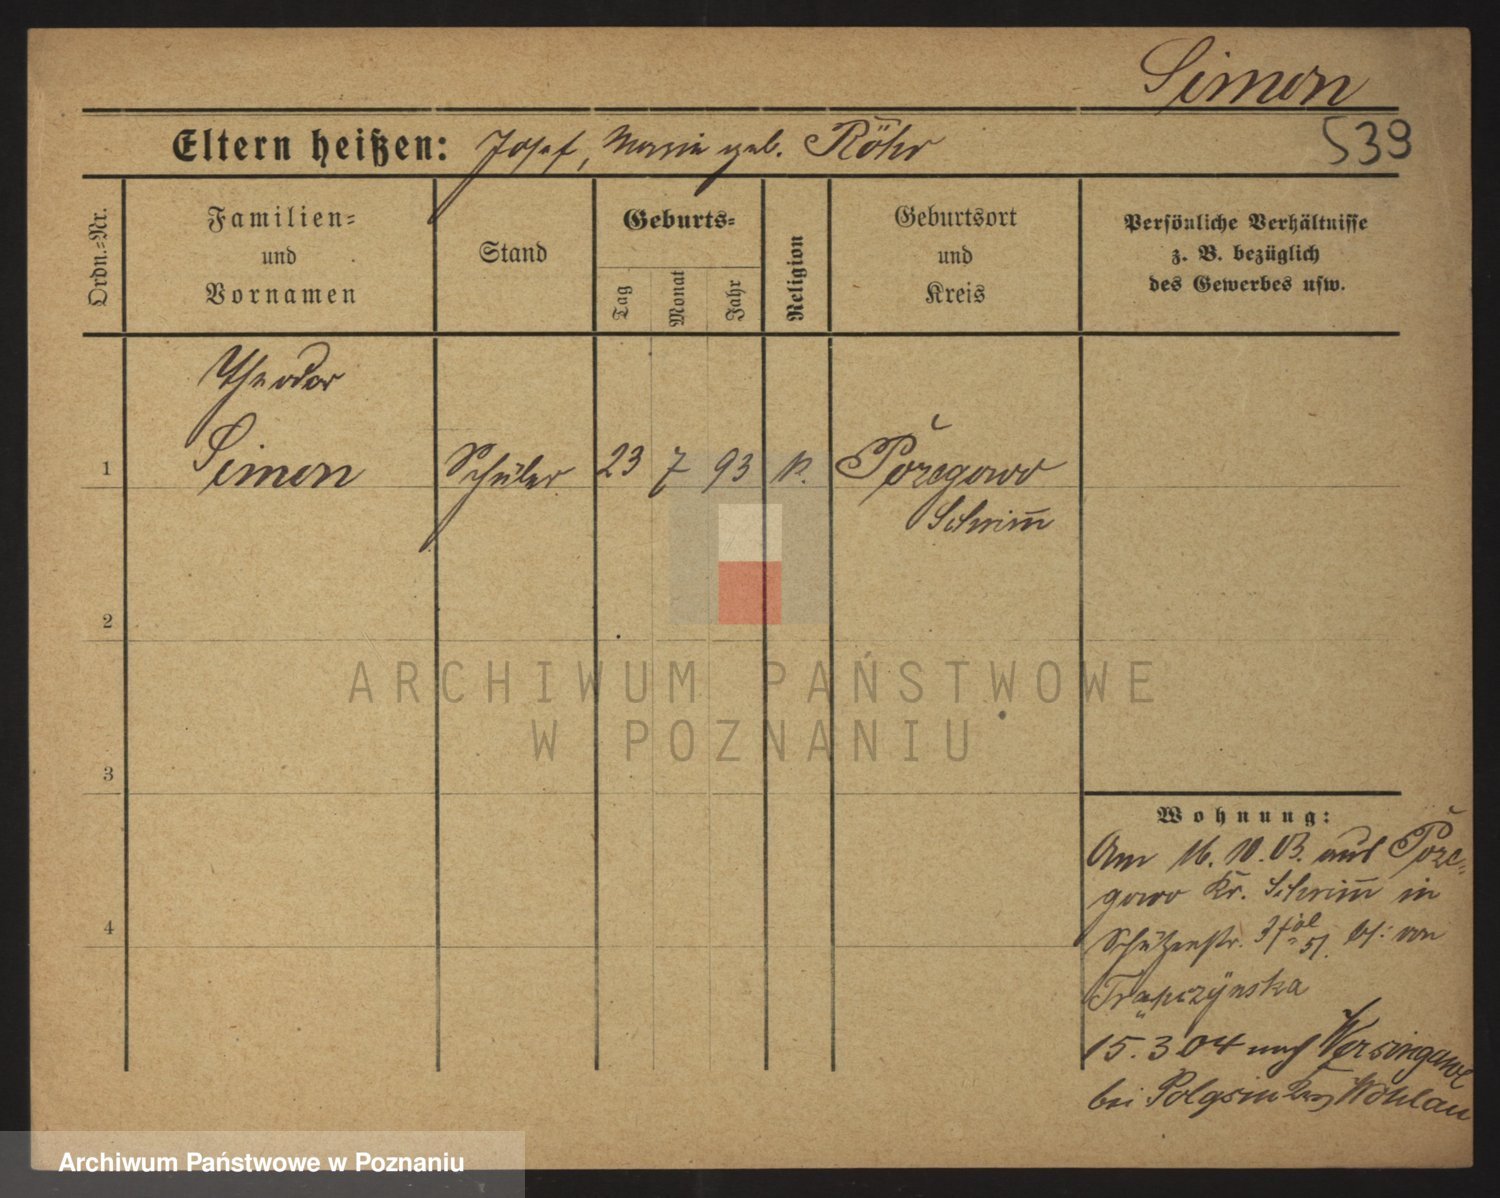 Simon
539
Eltern heißen: Josef, Maria geb. Röhr
Ordn.=Nr.
Familien=
und
Vornamen
Stand
Geburts=
Tag
Monat
Jahr
Religion
Geburtsort
und
Kreis
Persönliche Verhältnisse
z. B. bezüglich
des Gewerbes usw.
Theodor
1 Simon Schüler 23 7 93 k. Pozegowo
Schrim̅
2
3
4
Wohnung:
Am 16.10.03. aus Poze-
gowo Kr. Schrim̅ in
Schützenstr. 31 bei von
Trąpczÿnska
15.3 04 nach Wersingawe
bei Polgsen Wohlau
ARCHIWUM PAŃSTWOWE
W POZNANIU
Archiwum Państwowe w Poznaniu